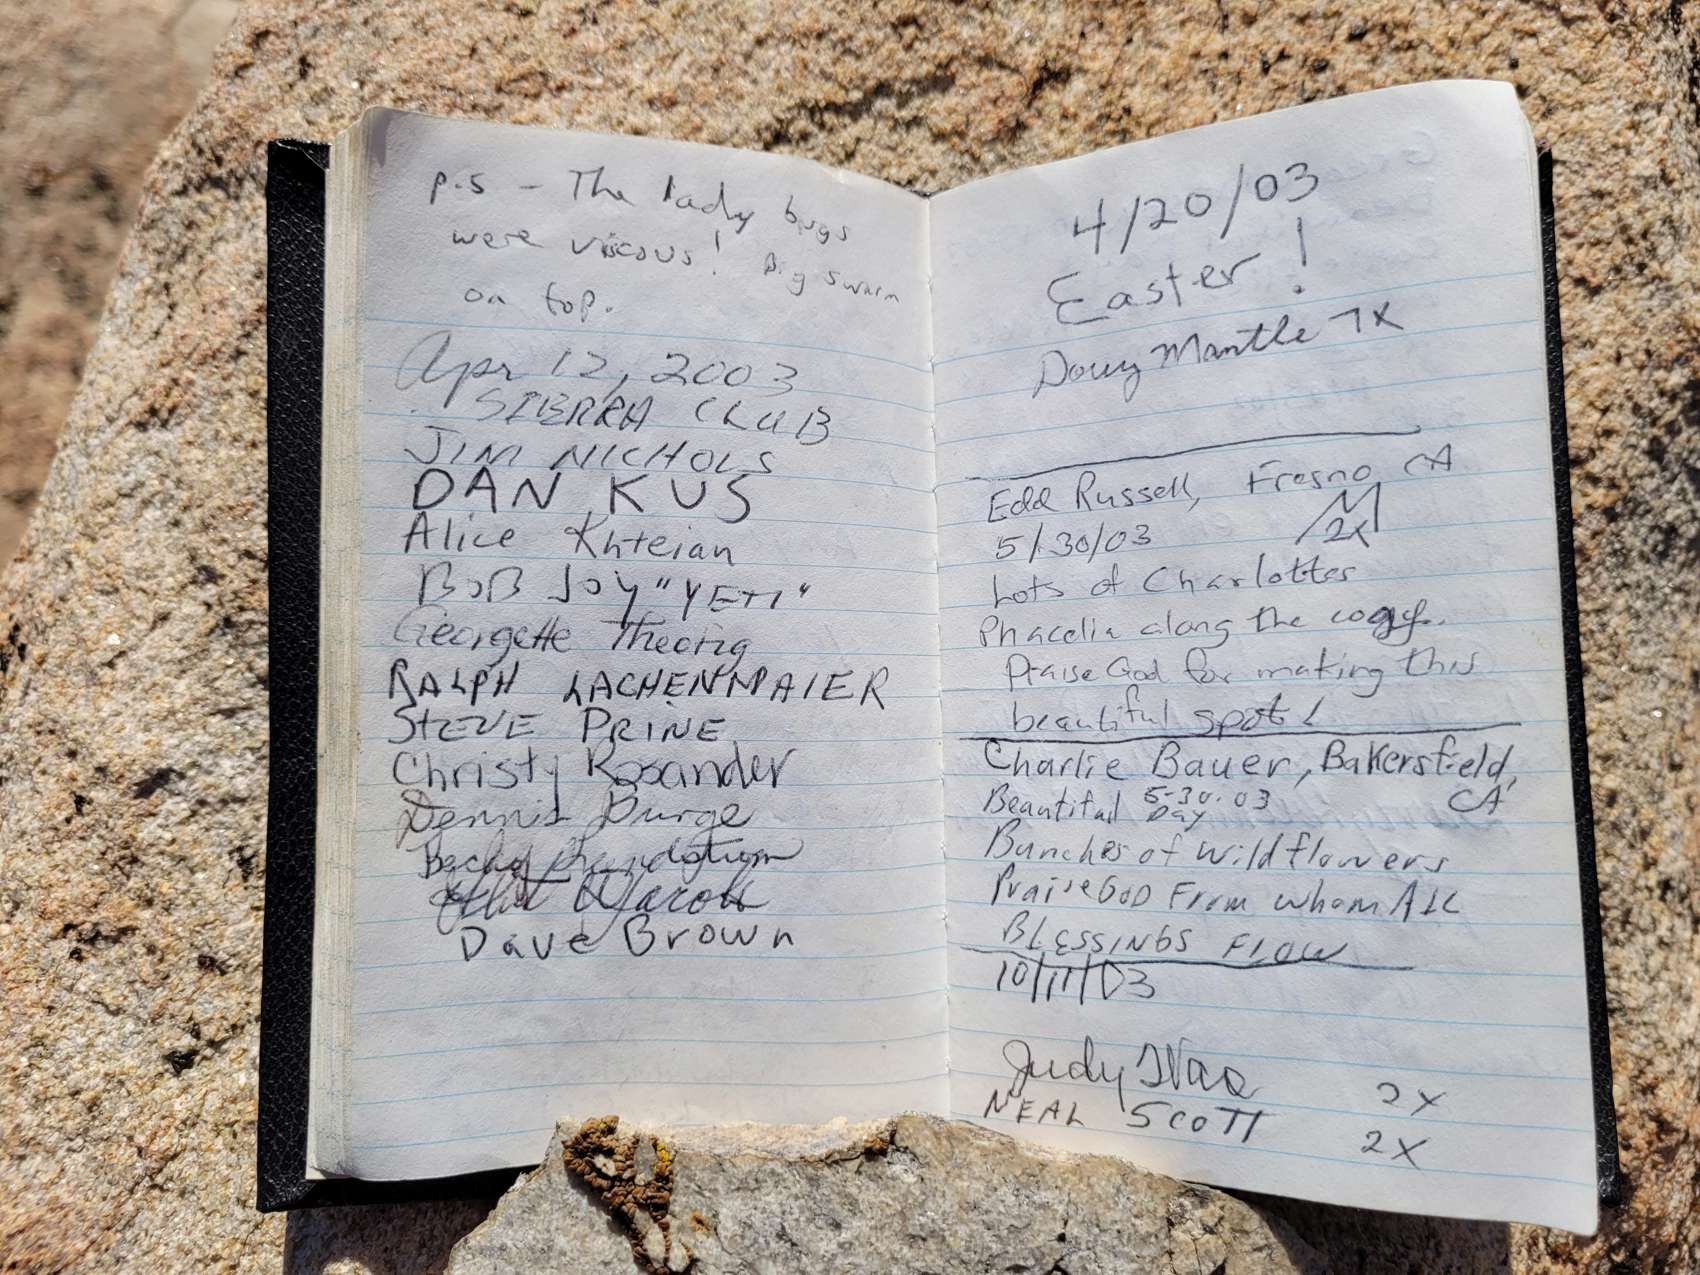 p.s – The lady bugs
were viscous! Big swarm
on top.
Apr 12, 2003
SIERRA CLUB
JIM NICHOLS
DAN KUS
Alice Khteian
BOB JOY "YETI"
Georgette Theotig
RALPH LACHENMAIER
STEVE PRINE
Christy Rosander
Dennis Burge
Becky
Dave Brown
4/20/03
Easter!
Doug Mantle 7X
Edd Russell, Fresno CA
5/30/03 2x
Lots of Charlottes
Phacelia along the way.
Praise God for making this
beautiful spot!
Charlie Bauer, Bakersfield,
Beautiful Day 5-30-03 CA
Bunches of wildflowers
Praise GOD From whom ALL
BLESSINGS FLOW
10/11/03
Judy 2x
NEAL SCOTT 2X